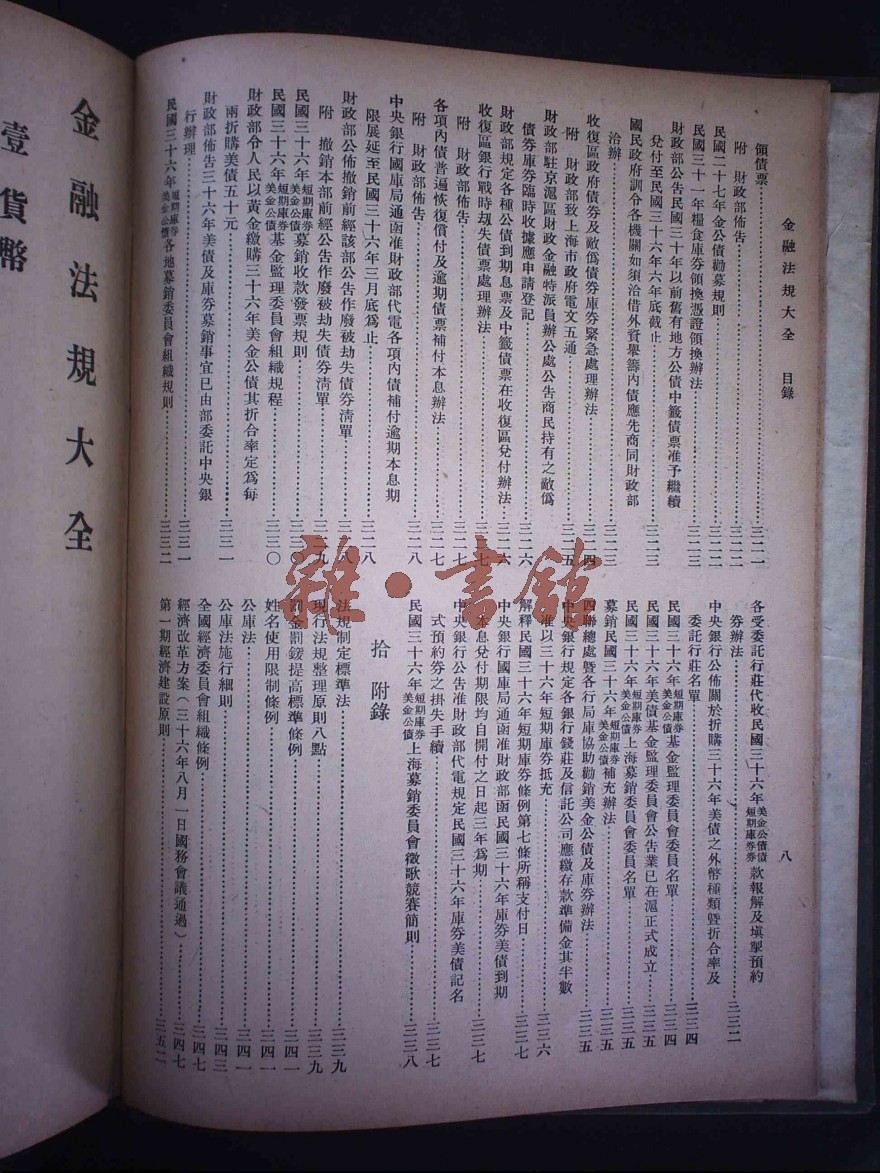 金融法規大全　目錄
八
領債票……三二一
附　財政部佈告……三二二
民國二十七年金公債勸募規則……三二二
民國三十一年糧食庫券領換憑證領換辦法……三二三
財政部公告民國三十年以前舊有地方公債中籤債票准予繼續
兌付至民國三十六年六年底截止……三二三
國民政府訓令各機關如須洽借外資舉籌內債應先商同財政部
洽辦……三二三
收復區政府債券及敵偽債券庫券緊急處理辦法……三二四
附　財政部致上海市政府電文五通……三二五
財政部駐京滬區財政金融特派員辦公處公告商民持有之敵偽
債券庫券臨時收據應申請登記……三二六
財政部規定各種公債到期息票及中籤債票在收復區兌付辦法……三二六
收復區銀行戰時刼失債票處理辦法……三二七
附　財政部佈告……三二七
各項內債普遍恢復償付及逾期債票補付本息辦法……三二七
附　財政部佈告……三二八
中央銀行國庫局通函准財政部代電各項內債補付逾期本息期
限展延至民國三十六年三月底為止……三二八
財政部公佈撤銷前經該部公告作廢被劫失債券清單……三二八
附　撤銷本部前經公告作廢被劫失債券清單……三二九
民國三十六年短期庫券美金公債募銷收款發票規則……三三〇
民國三十六年短期庫券美金公債基金監理委員會組織規程……三三〇
財政部令人民以黃金繳購三十六年美金公債其折合率定為每
兩折購美債五十元……三三一
財政部佈告三十六年美債及庫券募銷事宜已由部委託中央銀
行辦理……三三一
民國三十六年短期庫券美金公債各地募銷委員會組織規則……三三二
各受委託行莊代收民國三十六年美金公債債短期庫券券款報解及填掣預約
券辦法……三三二
中央銀行公佈關於折購三十六年美債之外幣種類暨折合率及
委託行莊名單……三三四
民國三十六年短期庫券美金公債基金監理委員會委員名單……三三四
民國三十六年美債基金監理委員會公告業已在滬正式成立……三三五
民國三十六年短期庫券美金公債上海募銷委員會委員名單……三三五
募銷民國三十六年短期庫券美金公債補充辦法……三三五
四聯總處暨各行局庫協助勸銷美金公債及庫券辦法……三三五
中央銀行規定各銀行錢莊及信託公司應繳存款準備金其半數
准以三十六年短期庫券抵充……三三六
解釋民國三十六年短期庫券條例第七條所稱支付日……三三七
中央銀行國庫局通函准財政部函民國三十六年庫券美債到期
本息兌付期限均自開付之日起三年為期……三三七
中央銀行公告准財政部代電規定民國三十六年庫券美債記名
式預約券之掛失手續……三三七
民國三十六年短期庫券美金公債上海募銷委員會徵歌競賽簡則……三三八
拾　附錄
法規制定標準法……三三九
現行法規整理原則八點……三三九
罰金罰鍰提高標準條例……三四一
姓名使用限制條例……三四一
公庫法……三四一
公庫法施行細則……三四三
全國經濟委員會組織條例……三四七
經濟改革方案（三十六年八月一日國務會議通過）……三四七
第一期經濟建設原則……三五二
金融法規大全
壹貨幣
雜·書館